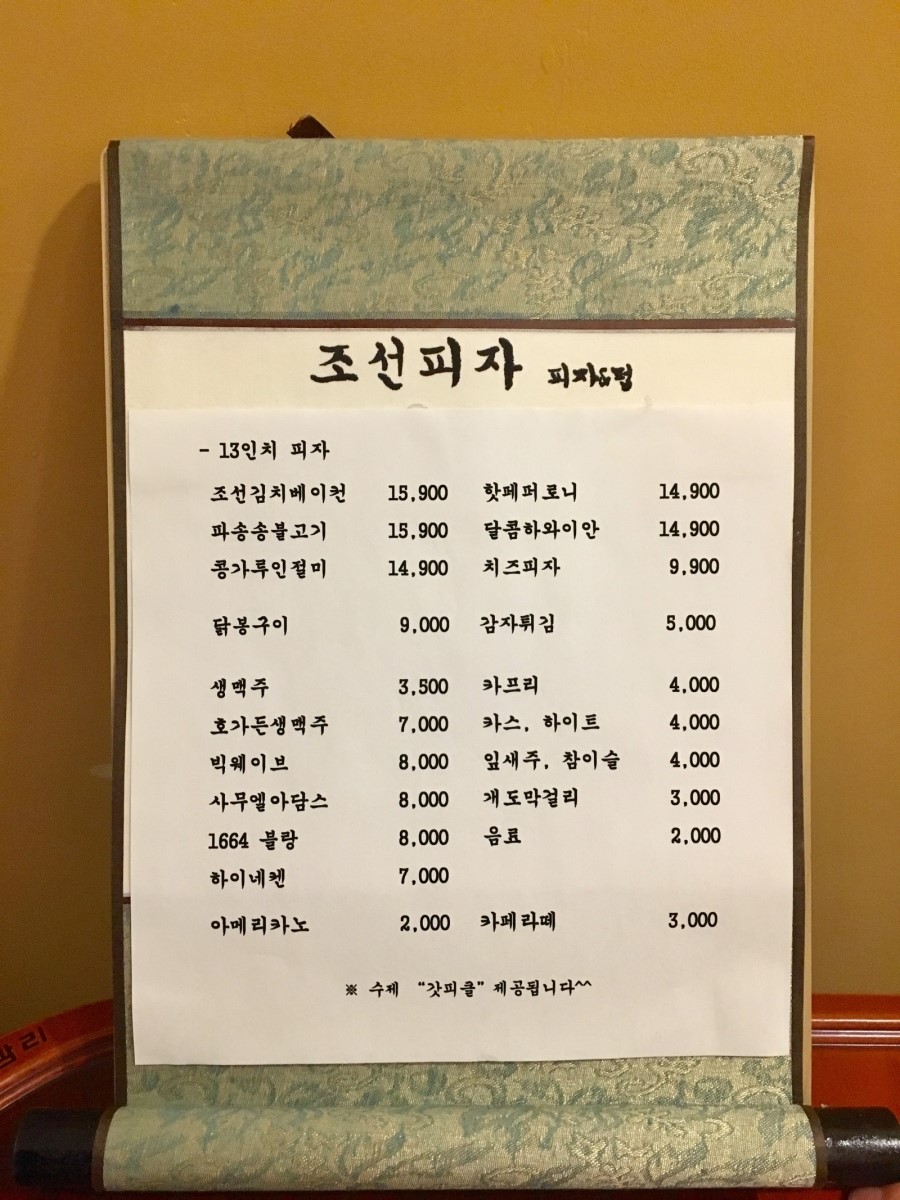 조선피자 피자&펍
- 13인치 피자
조선김치베이컨 15,900 핫페퍼로니 14,900
파송송불고기 15,900 달콤하와이안 14,900
콩가루인절미 14,900 치즈피자 9,900
닭봉구이 9,000 감자튀김 5,000
생맥주 3,500 카프리 4,000
호가든생맥주 7,000 카스, 하이트 4,000
빅웨이브 8,000 잎새주, 참이슬 4,000
사무엘아담스 8,000 개도막걸리 3,000
1664 블랑 8,000 음료 2,000
하이네켄 7,000
아메리카노 2,000 카페라떼 3,000
※ 수제 “갓피클” 제공됩니다^^